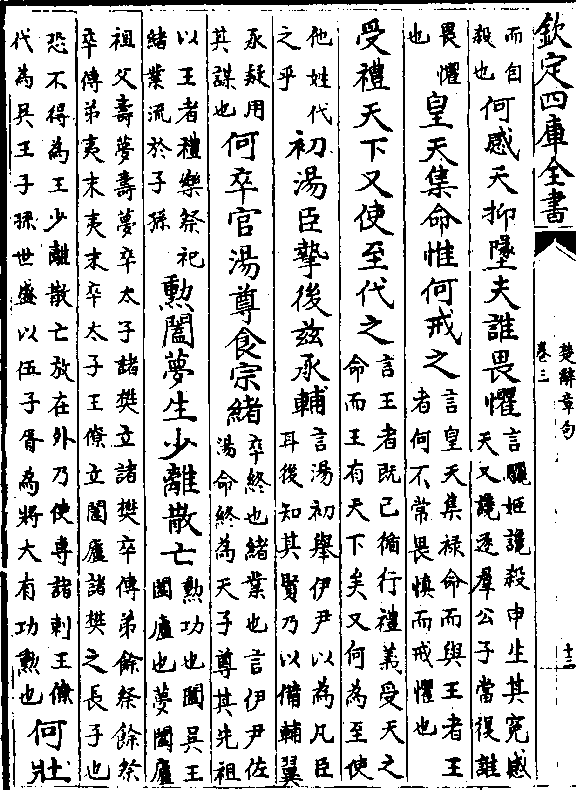 欽定四庫全書
楚辭章句
卷三
十三
而自
殺也
何感天抑墜夫誰畏懼
言驪姬讒殺申生其冤感
天又讒逐羣公子當復誰
畏懼
也
皇天集命惟何戒之
言皇天集祿命而與王者王
者何不常畏慎而戒懼也
受禮天下又使至代之
言王者既已循行禮義受天之
命而王有天下矣又何為至使
他姓代
之乎
初湯臣摯後茲承輔
言湯初舉伊尹以為凡臣
耳後知其賢乃以備輔翼
承疑用
其謀也
何卒官湯尊食宗緒
卒終也緒業也言伊尹佐
湯命終為天子尊其先祖
以王者禮樂祭祀
緒業流於子孫
勲闔夢生少離散亡
勲功也闔吳王
闔廬也夢闔廬
祖父壽夢壽夢卒太子諸樊立諸樊卒傳弟餘祭餘祭
卒傳弟夷末夷末卒太子王僚立闔廬諸樊之長子也
恐不得為王少離散亡放在外乃使専諸刺王僚
代為吳王子孫世盛以伍子胥為將大有功勲也
何壯